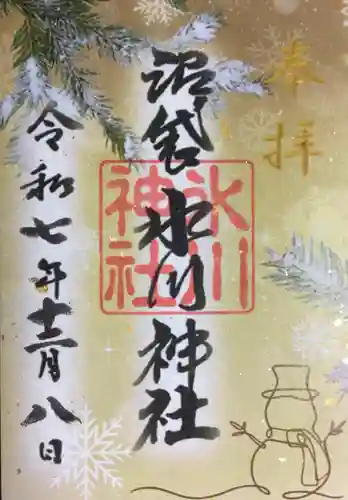 奉拝
沼袋氷川神社
氷川神社
令和七年十二月八日